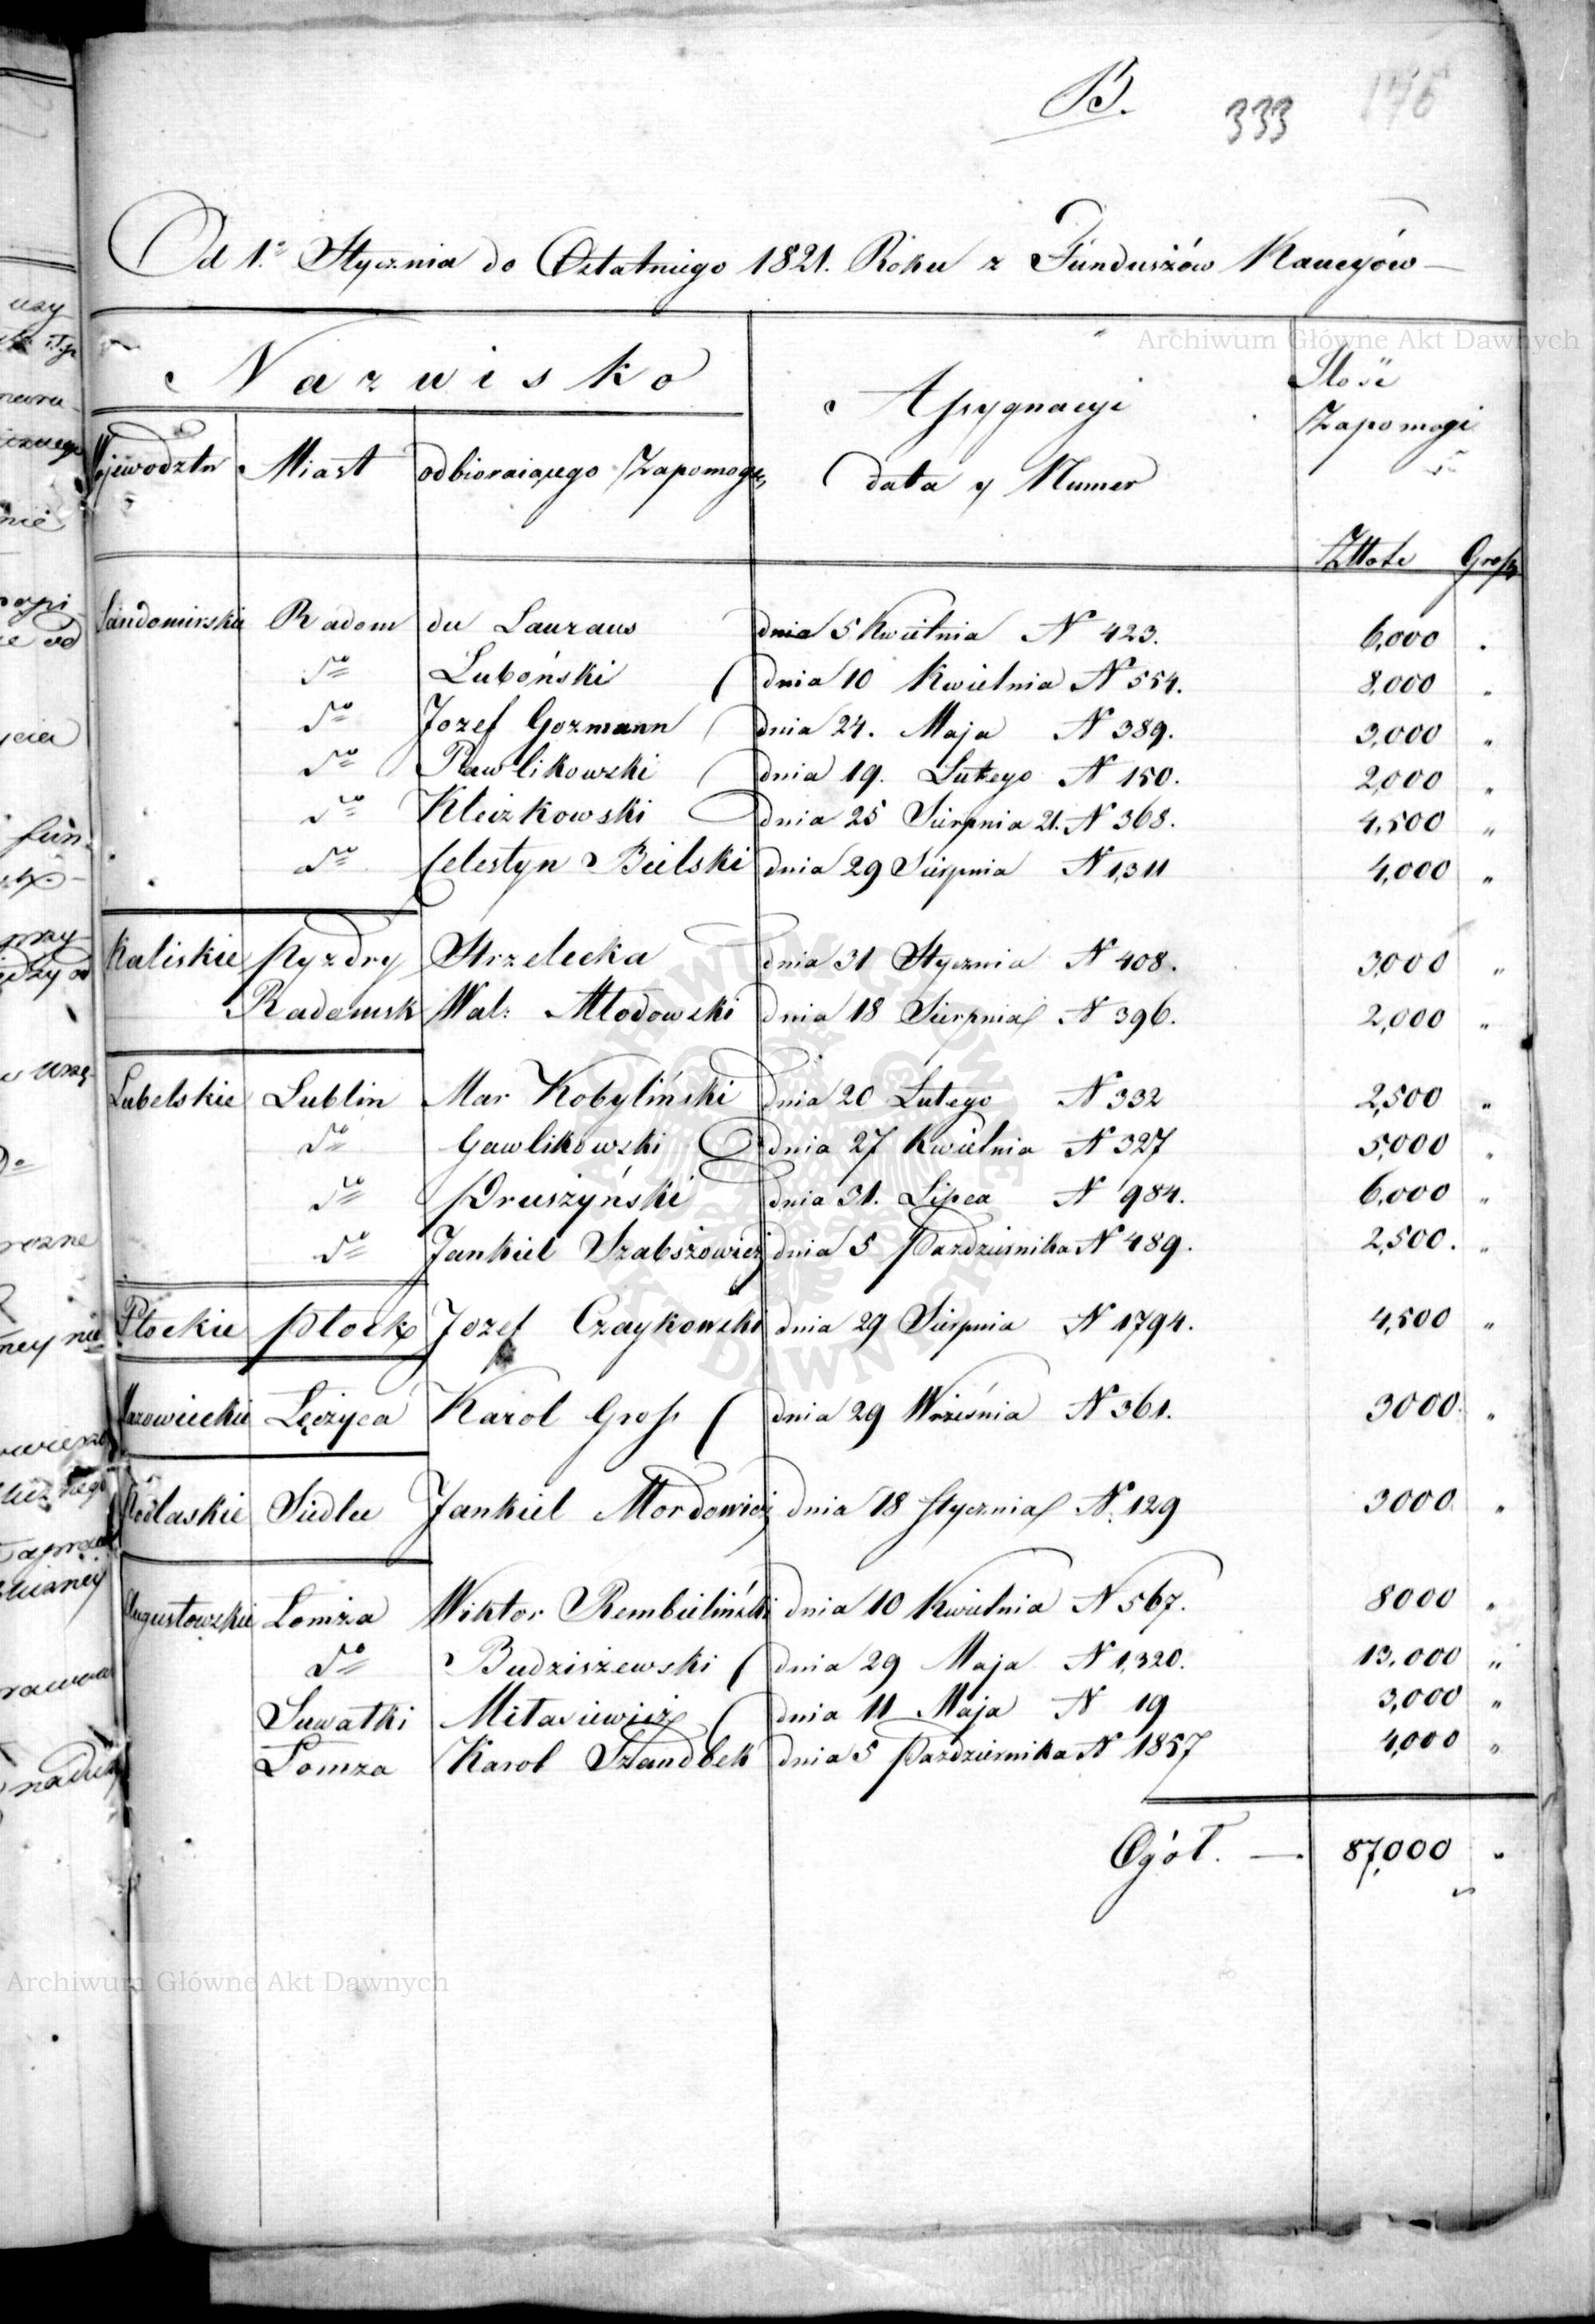 B.
333 176
Od 1.o Stycznia do Ostatniego 1821. Roku z Funduszów Kaucyów
Archiwum Główne Akt Dawnych
Nazwisko
Assygnacyi
Ilość
Zapomogi
Wojewodztw Miast odbieraiącego Zapomogę
data y Numer
Złłote Grosz
Sandomirskie Radom du Lauraus dnia 5 Kwietnia N 423. 6,000 "
do Luboński dnia 10 Kwietnia N 554. 8,000 "
do Jozef Gozmann dnia 24. Maja N 389. 3,000 "
do Pawlikowski dnia 19. Lutego N 150. 2,000 "
do Kleizkowski dnia 25 Sierpnia 21. N 368. 4,500 "
do Celestyn Bielski dnia 29 Sierpnia N 1,311 4,000 "
Kaliskie Pyzdry Strzelecka dnia 31 Stycznia N 408. 3,000 "
Radomsk Wal: Młodowski dnia 18 Sierpnia N 396. 2,000 "
Lubelskie Lublin Mar Kobyliński dnia 20 Lutego N 332 2,500 "
do Gawlikowski dnia 27 Kwietnia N 327 5,000 "
do Pruszyński dnia 31. Lipca N 984. 6,000 "
do Jankiel Szabszowicz dnia 5 Pazdziernika N 489. 2,500. "
Płockie Płock Jozef Czaykowski dnia 29 Sierpnia N 1794. 4,500 "
Mazowieckie Łęczyca Karol Gross dnia 29 Września N 361. 3000. "
Podlaskie Siedlce Jankiel Mordowicz dnia 18 Stycznia N. 129 3000 "
Augustowskie Łomża Wiktor Rembieliński dnia 10 Kwietnia N 567. 8000 "
do Budziszewski dnia 29 Maja N 1,320. 13,000 "
Suwałki Mitasiewicz dnia 11 Maja N 19 3,000 "
Łomza Karol Szandbek dnia 5 Pazdziernika N 1857 4,000 "
Ogół. — 87,000 "
Archiwum Główne Akt Dawnych